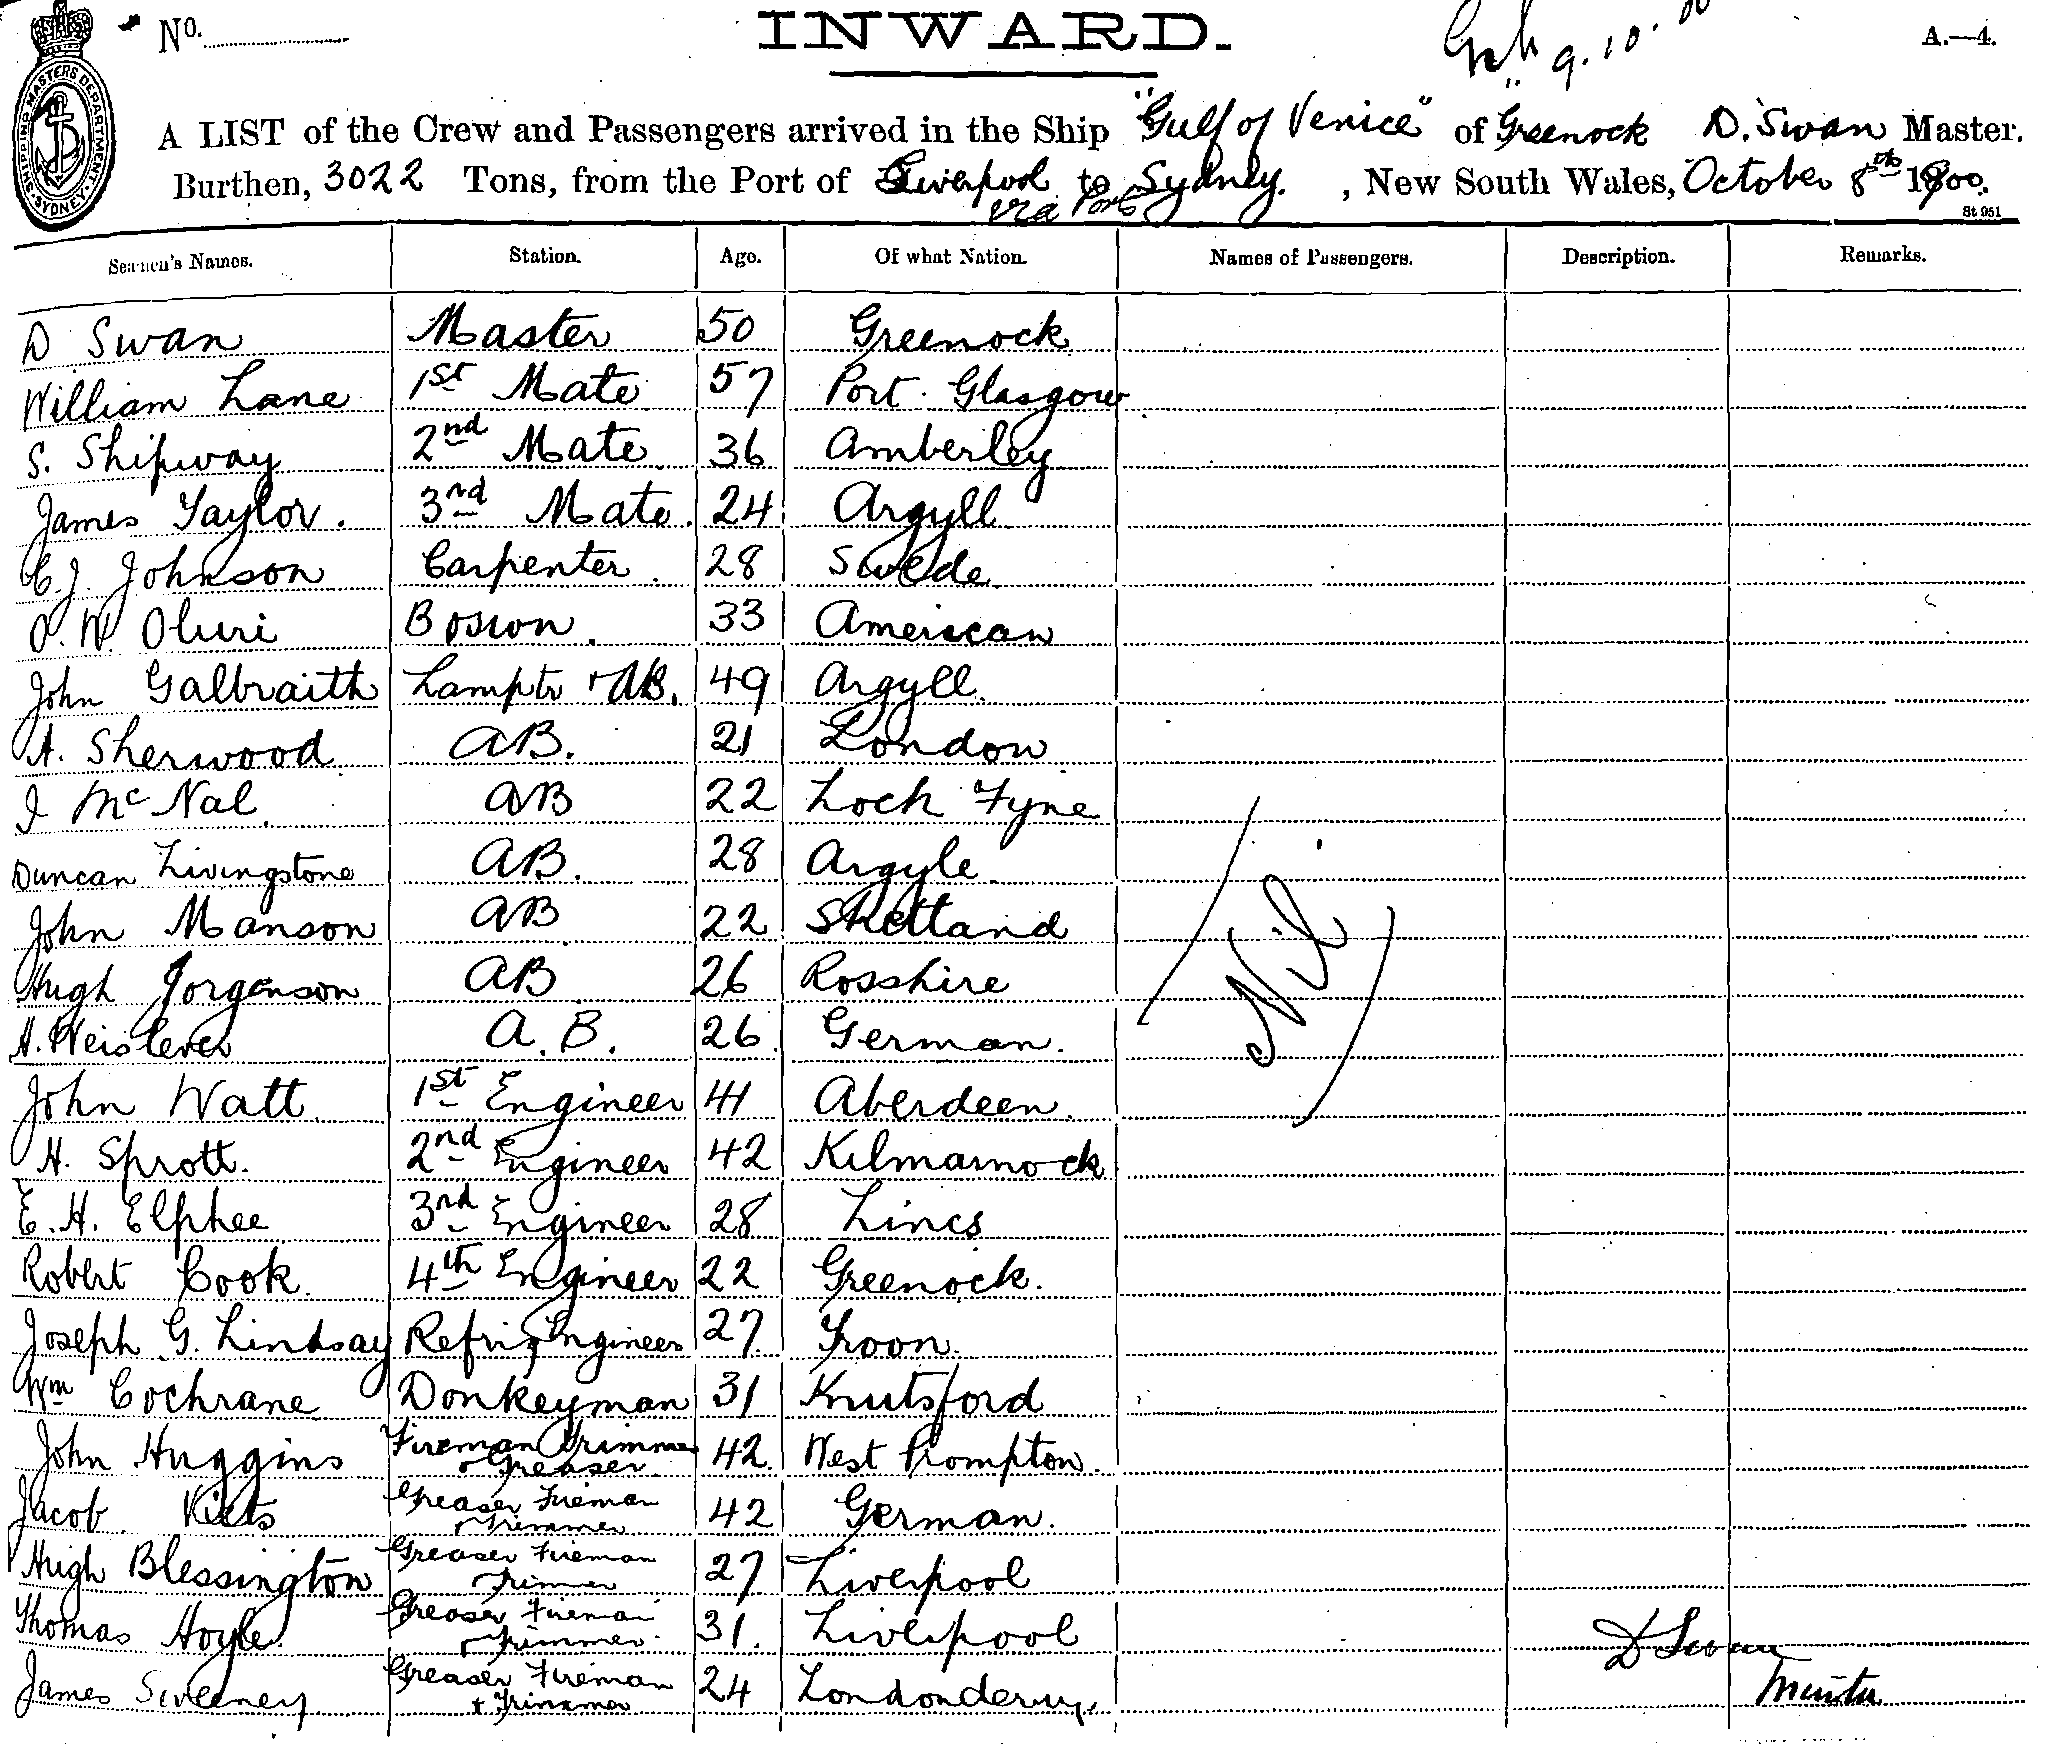 No.
INWARD.
9.10.00
A.—4.
SHIPPING MASTERS DEPARTMENT. SYDNEY.
A LIST of the Crew and Passengers arrived in the Ship "Gulf of Venice" of Greenock D. Swan Master.
Burthen, 3022 Tons, from the Port of Liverpool to Sydney. , New South Wales, October 8th 1900.
via Ports
St 951
Seamen's Names. Station. Age. Of what Nation. Names of Passengers. Description. Remarks.
D Swan Master 50 Greenock
William Lane 1st Mate 57 Port Glasgow
S. Shipway 2nd Mate 36 Amberley
James Taylor. 3rd Mate. 24 Argyll
C. J. Johnson Carpenter. 28 Swede
O. W. Oluri Boswn. 33 American
John Galbraith Lamptr + AB. 49 Argyll.
A. Sherwood AB. 21 London
J McNal. AB 22 Loch Fyne
Duncan Livingstone AB. 28 Argyle
John Manson AB 22 Shetland
Nil
Hugh Jorgenson AB 26 Rosshire
A. B. 26 German.
John Watt. 1st Engineer 41 Aberdeen.
H. Sprott. 2nd Engineer 42 Kilmarnock
E. H. Elphee 3rd Engineer 28 Lincs
Robert Cook. 4th Engineer 22 Greenock.
Joseph G. Lindsay Refrig Engineer 27 Troon.
Wm Cochrane Donkeyman 31 Knutsford
John Huggins Fireman Trimmer 42. West Brompton.
+ Greaser
Jacob Greaser Fireman 42 German.
+ Trimmer
Hugh Blessington Greaser Fireman 27 Liverpool
+ Trimmer
Thomas Hoyle. Greaser Fireman 31. Liverpool
+ Trimmer.
D Swan
James Sweeney Greaser Fireman 24 Londonderry.
+ Trimmer
Master